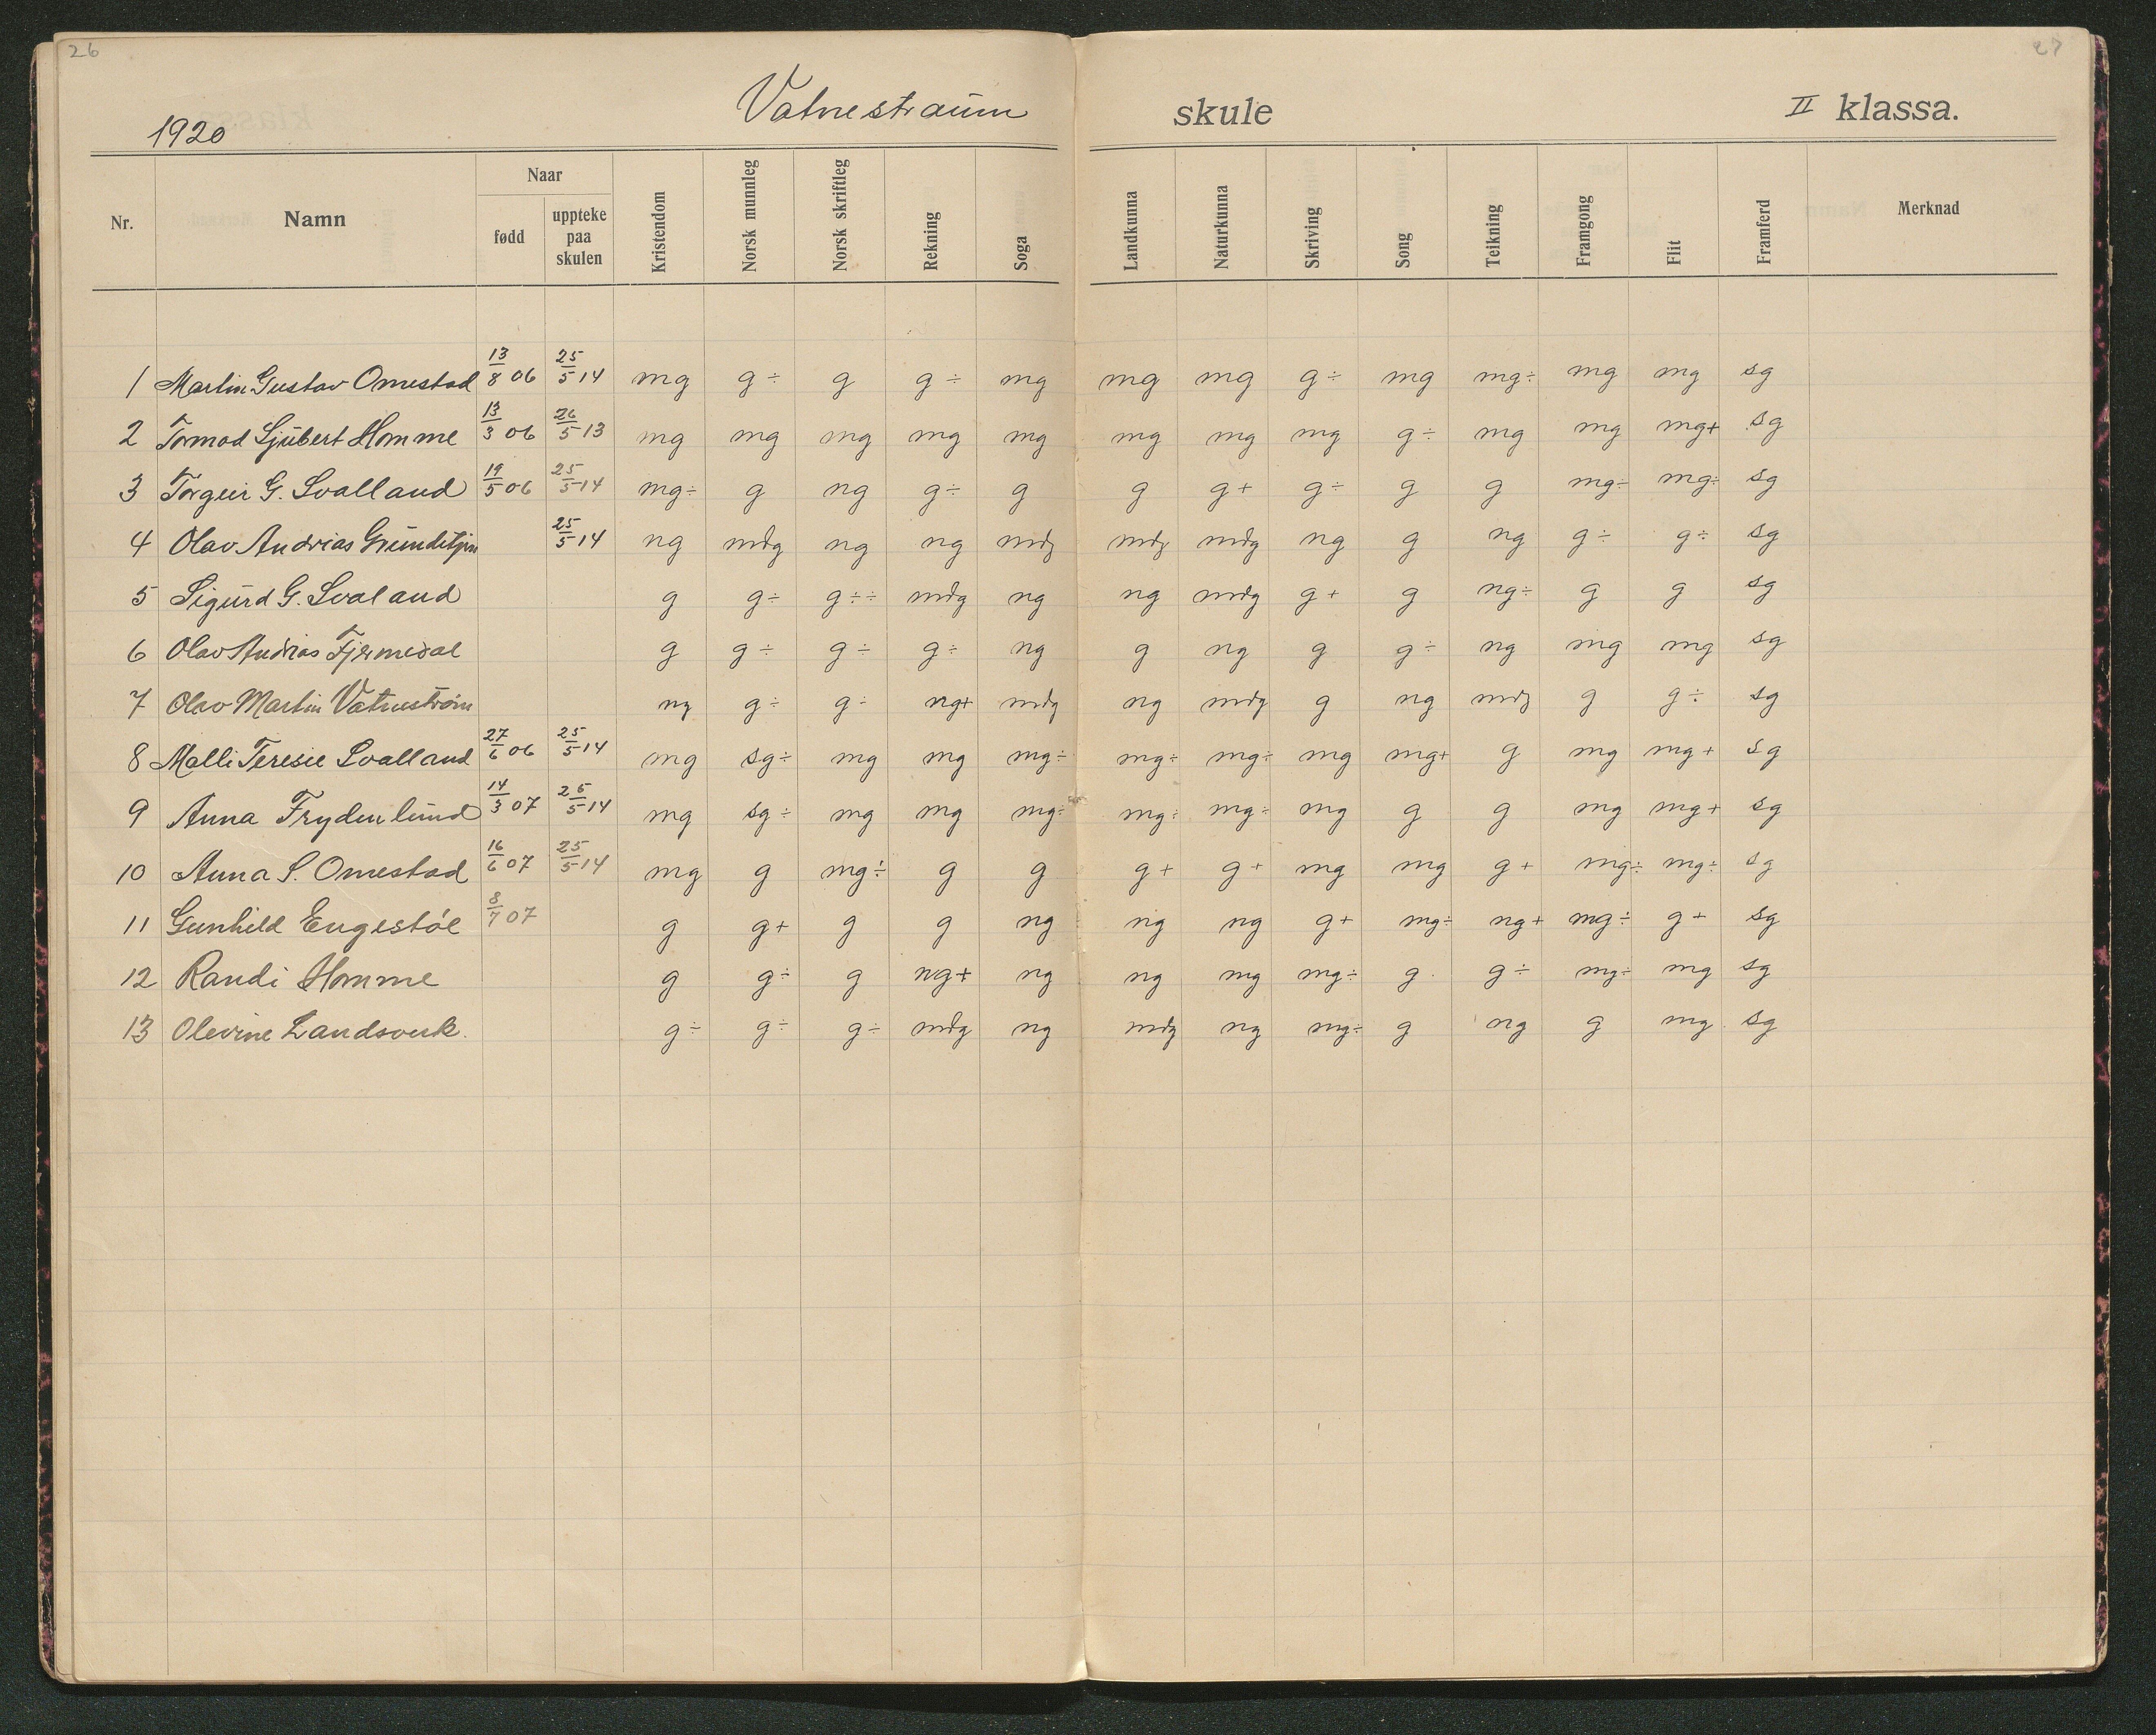 26
27
Vatnestraum skule II klassa.
1920
Nr. Namn Naar fødd uppteke paa skulen Kristendom Norsk munnleg Norsk skriftleg Rekning Soga Landkunna Naturkunna Skriving Song Teikning Framgong Flit Framferd Merknad
1 Martin Gustav Omestad 13/8 06 25/5 14 mg g÷ g g÷ mg mg mg g÷ mg mg÷ mg mg sg
2 Tormod Ljubert Homme 13/3 06 26/5 13 mg mg mg mg mg mg mg mg g÷ mg mg mg+ sg
3 Torgeir G. Svalland 19/5 06 25/5 14 mg÷ g ng g÷ g g g+ g÷ g g mg÷ mg÷ sg
4 Olav Andrias 25/5 14 ng mdg ng ng mdg mdg mdg ng g ng g÷ g÷ sg
5 Sigurd G. Svaland g g÷ g÷÷ mdg ng ng mdg g+ g ng÷ g g sg
6 Olav Andrias Fjermedal g g÷ g÷ g÷ ng g ng g g÷ ng mg mg sg
7 Olav Martin Vatnestrøm ng g÷ g÷ ng+ mdg ng mdg g ng mdg g g÷ sg
8 Malli Teresie Svalland 27/6 06 25/5 14 mg sg÷ mg mg mg÷ mg÷ mg÷ mg mg+ g mg mg+ sg
9 Anna Frydenlund 14/3 07 25/5 14 mg sg÷ mg mg mg÷ mg÷ mg÷ mg g g mg mg+ sg
10 Anna S. Omestad 16/6 07 25/5 14 mg g mg÷ g g g+ g+ mg mg g+ mg÷ mg÷ sg
11 Gunhild Engestøl 8/7 07 g g+ g g ng ng ng g+ mg÷ ng+ mg÷ g+ sg
12 Randi Homme g g÷ g ng+ ng ng mg mg÷ g g÷ mg÷ mg sg
13 Olevine Landsverk. g÷ g÷ g÷ mdg ng mdg ng mg÷ g ng g mg sg